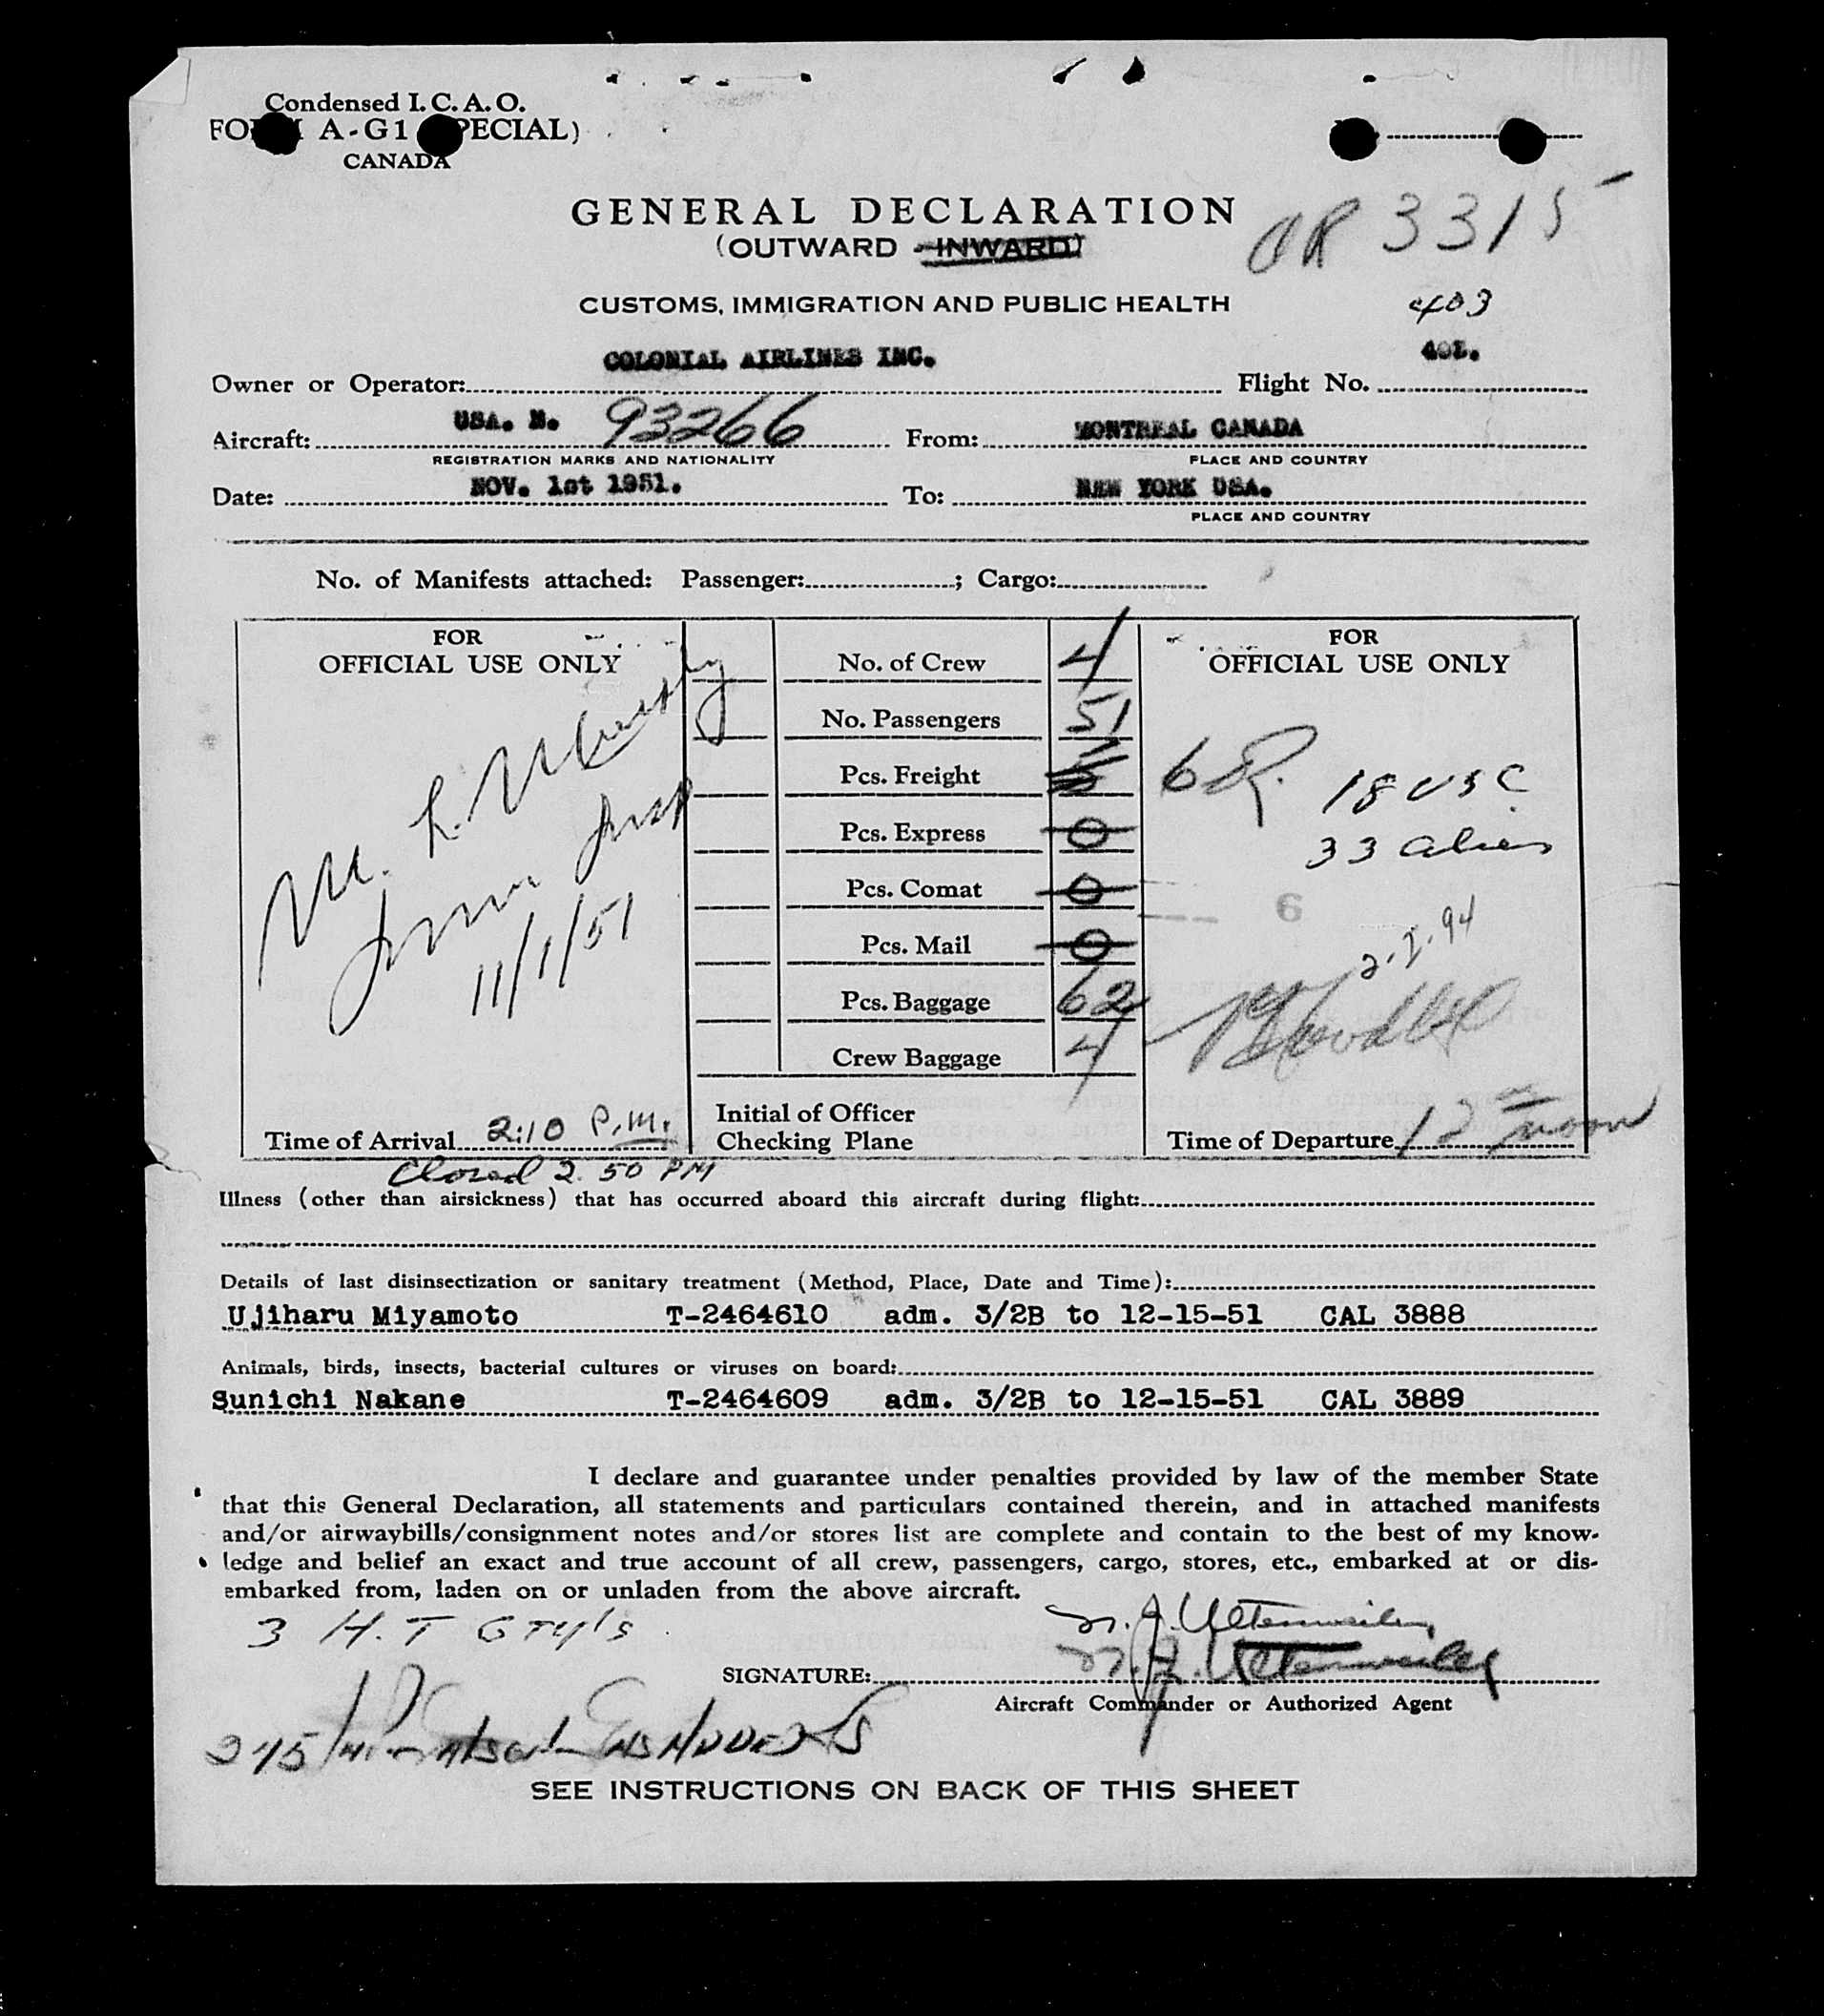 Condensed I.C.A.O.
FORM A-G1 (SPECIAL)
CANADA
GENERAL DECLARATION
(OUTWARD - INWARD)
OR 3315
CUSTOMS, IMMIGRATION AND PUBLIC HEALTH
403
Owner or Operator: COLONIAL AIRLINES INC. Flight No. 401.
Aircraft: USA. N. 93266 From: MONTREAL CANADA
REGISTRATION MARKS AND NATIONALITY PLACE AND COUNTRY
Date: NOV. 1st 1951. To: NEW YORK USA.
PLACE AND COUNTRY
No. of Manifests attached: Passenger: ; Cargo:
FOR
OFFICIAL USE ONLY
M. L.
Imm Insp
11/1/51
Time of Arrival 2:10 P.M.
Closed 2.50 PM
No. of Crew 4
No. Passengers 51
Pcs. Freight
Pcs. Express 0
Pcs. Comat 0
Pcs. Mail 0
Pcs. Baggage 62
Crew Baggage 4
Initial of Officer
Checking Plane
FOR
OFFICIAL USE ONLY
6 R. 18 USC
33 alien
6
2-I-94
Time of Departure 12 noon
Illness (other than airsickness) that has occurred aboard this aircraft during flight:
Details of last disinsectization or sanitary treatment (Method, Place, Date and Time):
Ujiharu Miyamoto T-2464610 adm. 3/2B to 12-15-51 CAL 3888
Animals, birds, insects, bacterial cultures or viruses on board:
Sunichi Nakane T-2464609 adm. 3/2B to 12-15-51 CAL 3889
I declare and guarantee under penalties provided by law of the member State
that this General Declaration, all statements and particulars contained therein, and in attached manifests
and/or airwaybills/consignment notes and/or stores list are complete and contain to the best of my know-
ledge and belief an exact and true account of all crew, passengers, cargo, stores, etc., embarked at or dis-
embarked from, laden on or unladen from the above aircraft.
3 H.T
SIGNATURE:
Aircraft Commander or Authorized Agent
SEE INSTRUCTIONS ON BACK OF THIS SHEET